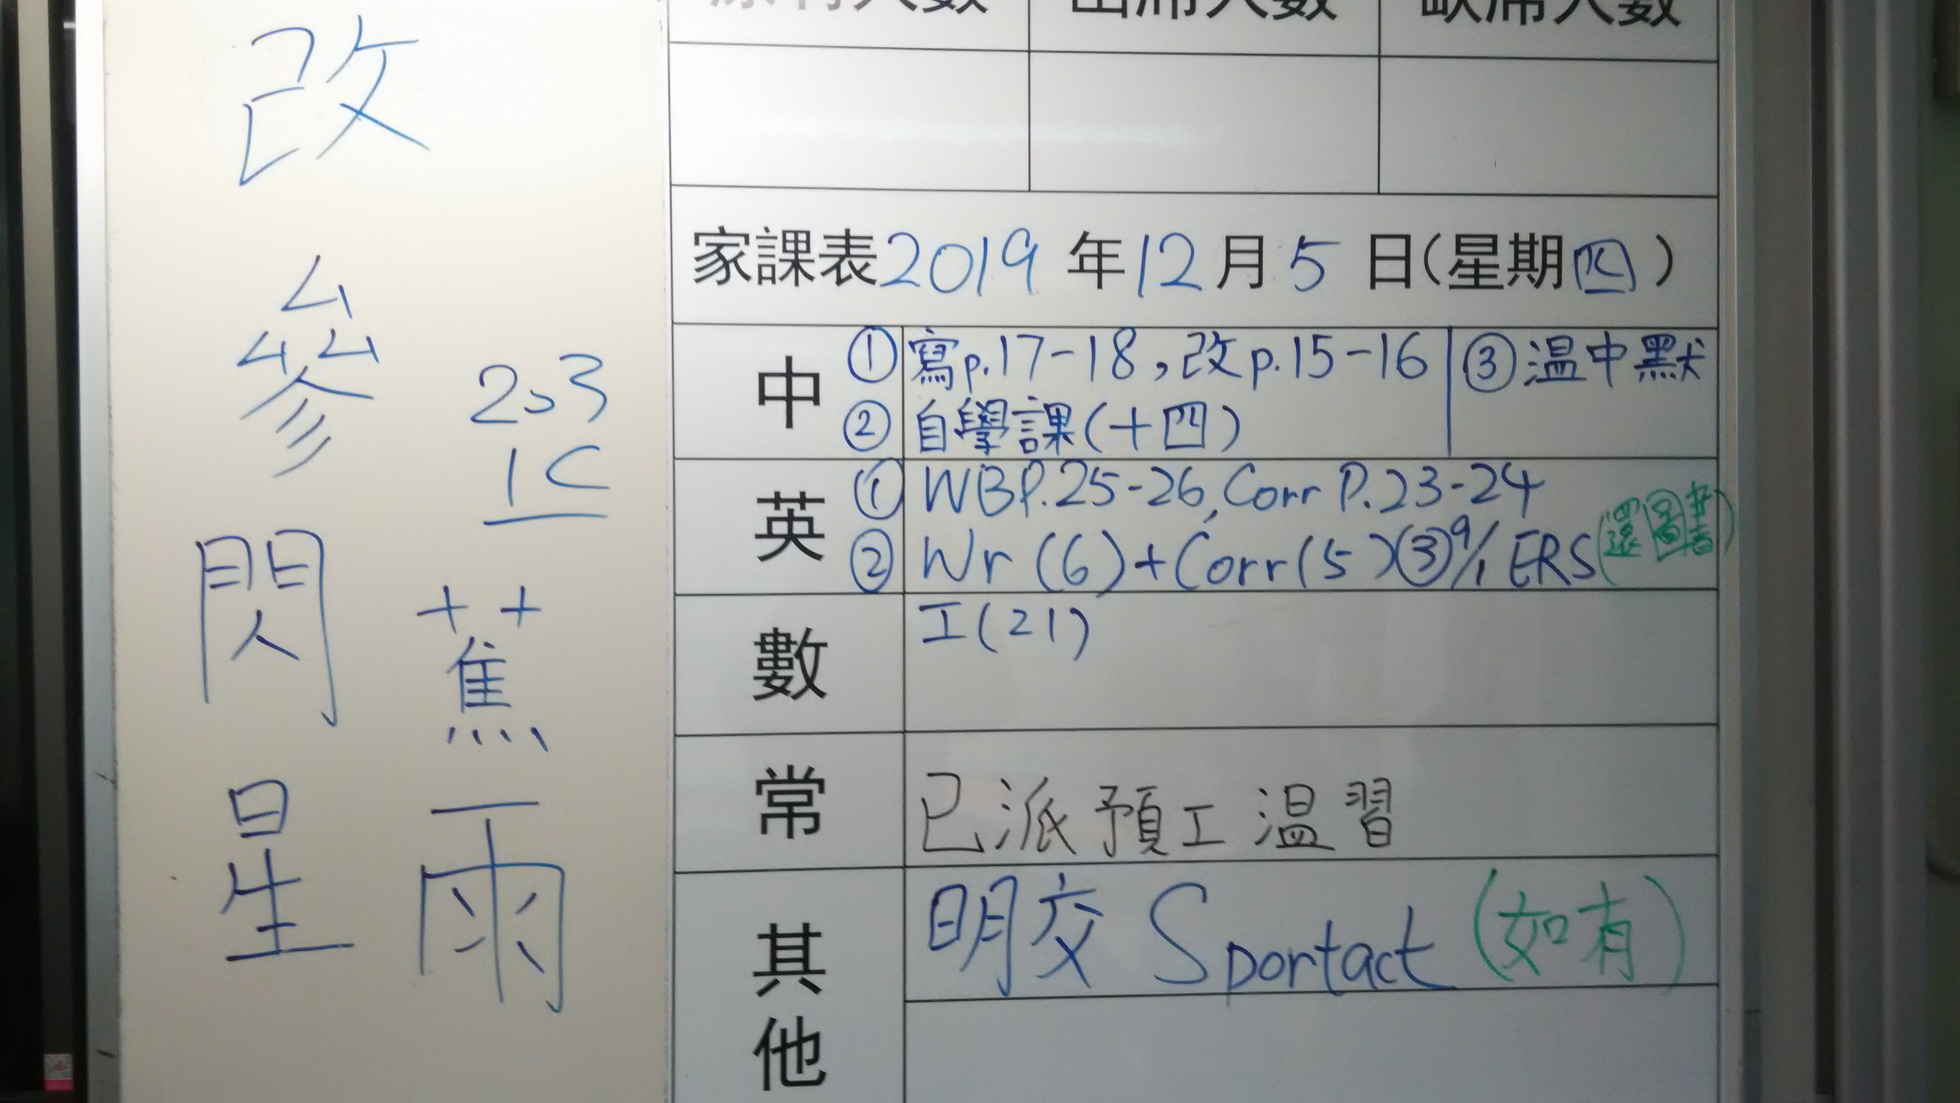 改
參
閃
星
2,3
1C
蕉
雨
出席人數
缺席人數
家課表2019年12月5日(星期四)
中
① 寫p.17-18,改p.15-16
② 自學課(十四)
③ 温中默
英
① WBP.25-26,Corr P.23-24
② Wr(6)+Corr(5)③9/1 ERS(還圖書)
數
工(21)
常
已派預工溫習
其他
明交 Sportact (如有)